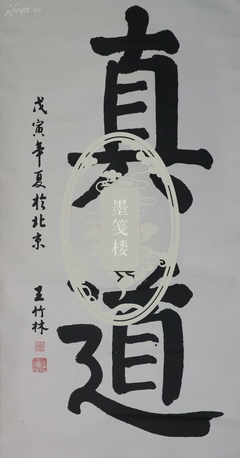 真道
戊寅年夏於北京
王竹林
墨笺楼